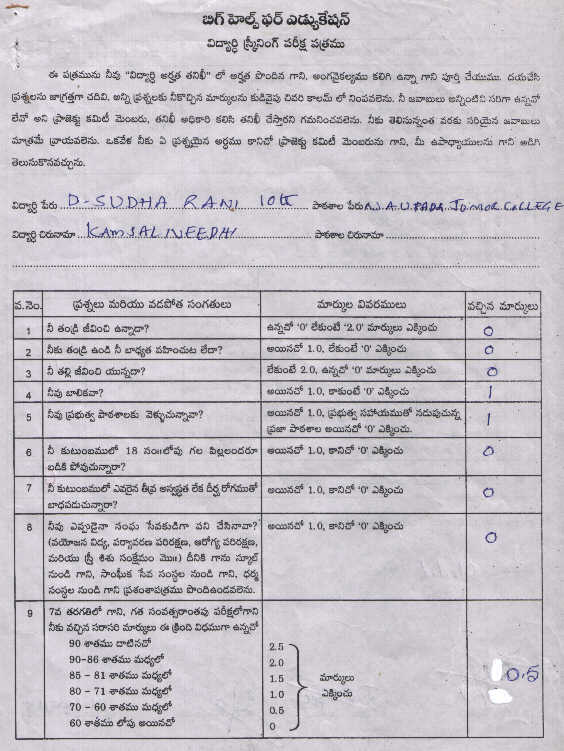 బిగ్ హెల్ప్ ఫర్ ఎడ్యుకేషన్
విద్యార్థి స్క్రీనింగ్ పరీక్ష పత్రము
ఈ పత్రమును నీవు "విద్యార్థి అర్హత తనిఖీ" లో అర్హత పొందిన గాని, అంగవైకల్యము కలిగి ఉన్నా గాని పూర్తి చేయుము. దయచేసి
ప్రశ్నలను జాగ్రత్తగా చదివి, అన్ని ప్రశ్నలకు నీకొచ్చిన మార్కులను కుడివైపు చివరి కాలమ్ లో నింపవలెను. నీ జవాబులు అన్నింటిని సరిగా ఉన్నవో
లేవో అని ప్రాజెక్టు కమిటీ మెంబరు, తనిఖీ అధికారి కలిసి తనిఖీ చేస్తారని గమనించవలెను. నీకు తెలిసున్నంత వరకు సరియైన జవాబులు
మాత్రమే వ్రాయవలెను. ఒకవేళ నీకు ఏ ప్రశ్నయైన అర్థము కానిచో ప్రాజెక్ట్ కమిటీ మెంబరును గాని, మీ ఉపాధ్యాయులను గాని అడిగి
తెలుసుకొనవచ్చును.
విద్యార్థి పేరు D-SUDHA RANI 10th పాఠశాల పేరు N.A.U.PADA JUNIOR COLLEGE
విద్యార్థి చిరునామా KAMSALINEEDHI పాఠశాల చిరునామా
వ.నెం. ప్రశ్నలు మరియు వడపోత సంగతులు మార్కుల వివరములు వచ్చిన మార్కులు
1 నీ తండ్రి జీవించి ఉన్నాడా? ఉన్నచో '0' లేకుంటే '2.0' మార్కులు ఎక్కించు 0
2 నీకు తండ్రి ఉండి నీ బాధ్యత వహించుట లేదా? అయినచో 1.0, లేకుంటే '0' ఎక్కించు 0
3 నీ తల్లి జీవించి యున్నదా? లేకుంటే 2.0, ఉన్నచో '0' మార్కులు ఎక్కించు 0
4 నీవు బాలికవా? అయినచో 1.0, కాకుంటే '0' ఎక్కించు 1
5 నీవు ప్రభుత్వ పాఠశాలకు వెళ్ళుచున్నావా? అయినచో 1.0, ప్రభుత్వ సహాయముతో నడుపుచున్న 1
ప్రజా పాఠశాల అయినచో '0'. ఎక్కించు.
6 నీ కుటుంబములో 18 సం॥లోపు గల పిల్లలందరూ అయినచో 1.0, కానిచో '0' ఎక్కించు 0
బడికి పోవుచున్నారా?
7 నీ కుటుంబములో ఎవరైన తీవ్ర అస్వస్థత లేక దీర్ఘ రోగముతో అయినచో 1.0, కానిచో '0' ఎక్కించు 0
బాధపడుచున్నారా?
8 నీవు ఎప్పుడైనా సంఘ సేవకుడిగా పని చేసినావా? అయినచో 1.0, కానిచో '0' ఎక్కించు 0
(వయోజన విద్య, పర్యావరణ పరిరక్షణ, ఆరోగ్య పరిరక్షణ,
మరియు స్త్రీ శిశు సంక్షేమం మొ॥) దీనికి గాను స్కూల్
నుండి గాని, సాంఘిక సేవ సంస్థల నుండి గాని, ధర్మ
సంస్థల నుండి గాని ప్రశంశాపత్రము పొందిఉండవలెను.
9 7వ తరగతిలో గాని, గత సంవత్సరాంతపు పరీక్షలోగాని
నీకు వచ్చిన సరాసరి మార్కులు ఈ క్రింది విధముగా ఉన్నచో
90 శాతము దాటినచో 2.5
90-86 శాతము మధ్యలో 2.0
85 - 81 శాతము మధ్యలో 1.5 మార్కులు 0.5
80 - 71 శాతము మధ్యలో 1.0 ఎక్కించు
70 - 60 శాతము మధ్యలో 0.5
60 శాతము లోపు అయినచో 0